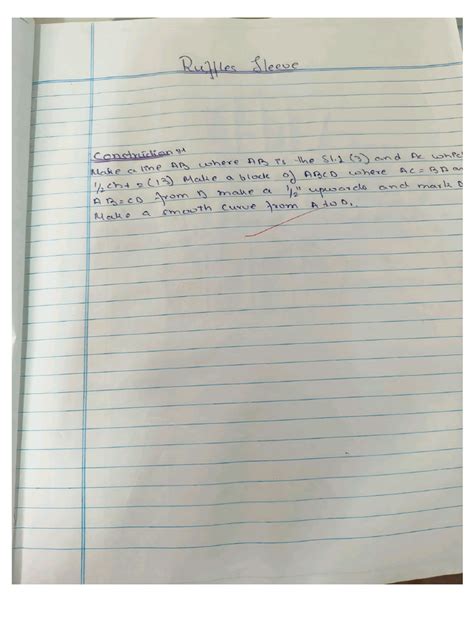 Ruffles Sleeve
Construction :-
Make a line AB where AB is the Sl.l (3) and AC whic
1/2 ch+2 (13) Make a block of ABCD where AC = BD an
AB = CD from D make a 1/2" upwards and mark D
Make a smooth curve from A to D.